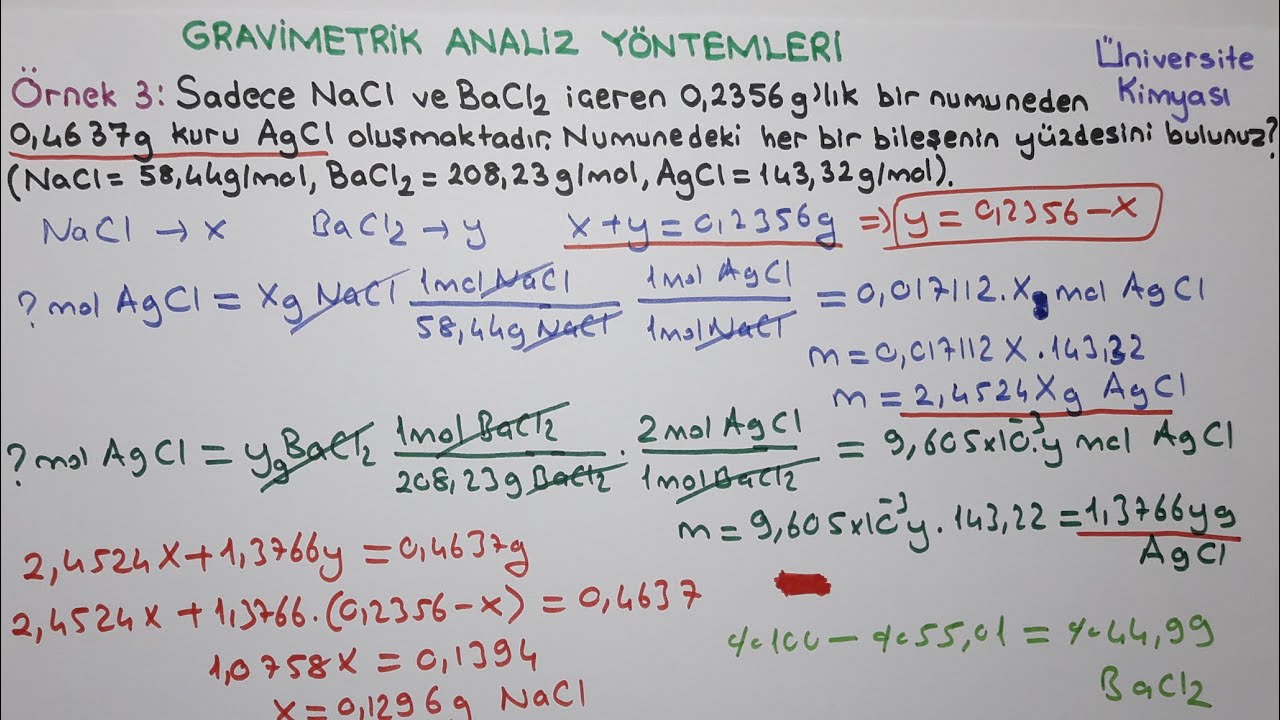 GRAVİMETRİK ANALİZ YÖNTEMLERİ
Üniversite Kimyası
Örnek 3: Sadece NaCl ve BaCl2 içeren 0,2356 g'lık bir numuneden
0,4637g kuru AgCl oluşmaktadır. Numunedeki her bir bileşenin yüzdesini bulunuz?
(NaCl = 58,44g/mol, BaCl2 = 208,23 g/mol, AgCl = 143,32 g/mol).
NaCl → x BaCl2 → y x + y = 0,2356g ⇒ y = 0,2356 - x
? mol AgCl = xg NaCl 1mol NaCl / 58,44g NaCl . 1mol AgCl / 1mol NaCl = 0,017112.x mol AgCl
m = 0,017112 x . 143,32
m = 2,4524xg AgCl
? mol AgCl = yg BaCl2 1mol BaCl2 / 208,23g BaCl2 . 2 mol AgCl / 1mol BaCl2 = 9,605x10^-3.y mol AgCl
m = 9,605x10^-3 y . 143,22 = 1,3766 yg AgCl
2,4524x + 1,3766y = 0,4637g
2,4524x + 1,3766.(0,2356 - x) = 0,4637
1,0758x = 0,1394
x = 0,1296g NaCl
%100 - %55,01 = %44,99
BaCl2